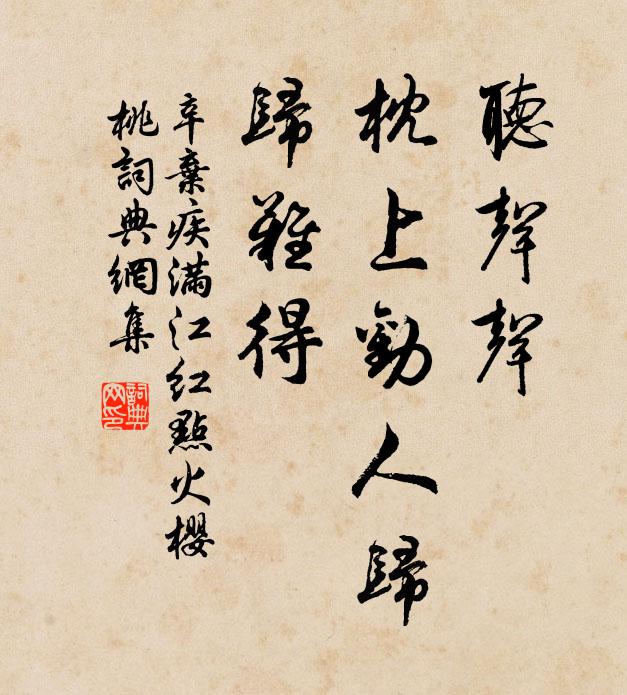 聽聲聲
枕上勸人歸
歸難得
辛棄疾滿江紅點火櫻
桃詞典網集
詞典
网印